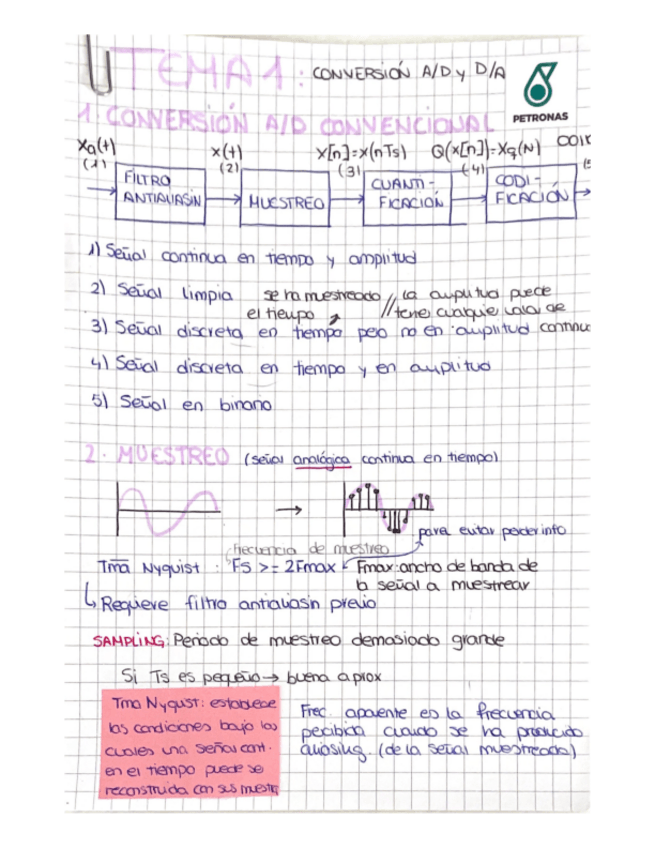 TEMA 1: CONVERSIÓN A/D y D/A
PETRONAS
1. CONVERSIÓN A/D CONVENCIONAL
Xa(t) x(t) X[n]=x(nTs) Q(x[n])=Xq(N)
(1) (2) (3) (4)
FILTRO ANTIALIASIN
MUESTREO
CUANTI-FICACIÓN
CODI-FICACIÓN
1) Señal continua en tiempo y amplitud
2) Señal limpia se ha muestreado // la amplitud puede
el tiempo // tener cualquier valor de
3) Señal discreta en tiempo pero no en amplitud
4) Señal discreta en tiempo y en amplitud
5) Señal en binario
2. MUESTREO (señal analógica continua en tiempo)
para evitar perder info
frecuencia de muestreo
Tma Nyquist : Fs >= 2Fmax Fmax: ancho de banda de
la señal a muestrear
↳ Requiere filtro antialiasin previo
SAMPLING: Periodo de muestreo demasiado grande
Si Ts es pequeño → buena aprox
Tma Nyqust: establece
las condiciones bajo las
cuales una señal cont.
en el tiempo puede se
reconstruida con sus
Frec. aparente es la frecuencia
percibida cuando se ha producido
aliasing. (de la señal muestreada)